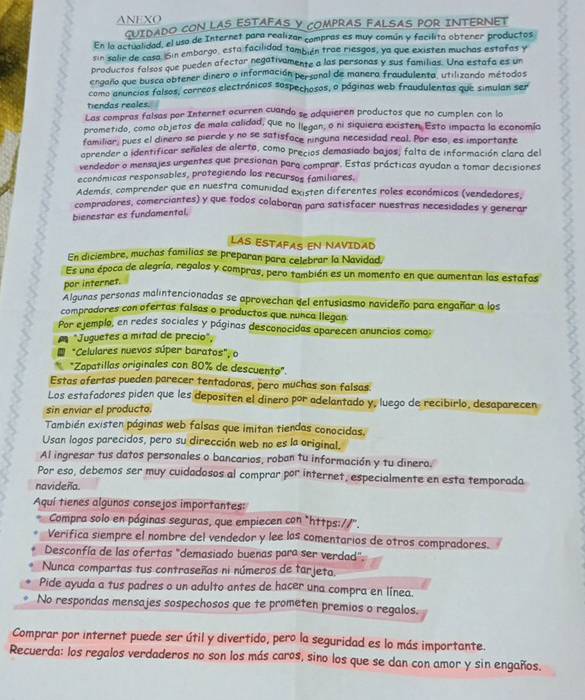 ANEXO
CUIDADO CON LAS ESTAFAS Y COMPRAS FALSAS POR INTERNET
En la actualidad, el uso de Internet para realizar compras es muy común y facilita obtener productos
sin salir de casa. Sin embargo, esta facilidad también trae riesgos, ya que existen muchas estafas y
productos falsos que pueden afectar negativamente a las personas y sus familias. Una estafa es un
engaño que busca obtener dinero o información personal de manera fraudulenta, utilizando métodos
como anuncios falsos, correos electrónicos sospechosos, o páginas web fraudulentas que simulan ser
tiendas reales.
Las compras falsas por Internet ocurren cuando se adquieren productos que no cumplen con lo
prometido, como objetos de mala calidad, que no llegan, o ni siquiera existen. Esto impacta la economía
familiar, pues el dinero se pierde y no se satisface ninguna necesidad real. Por eso, es importante
aprender a identificar señales de alerta, como precios demasiado bajos, falta de información clara del
vendedor o mensajes urgentes que presionan para comprar. Estas prácticas ayudan a tomar decisiones
económicas responsables, protegiendo los recursos familiares.
Además, comprender que en nuestra comunidad existen diferentes roles económicos (vendedores,
compradores, comerciantes) y que todos colaboran para satisfacer nuestras necesidades y generar
bienestar es fundamental.
LAS ESTAFAS EN NAVIDAD
En diciembre, muchas familias se preparan para celebrar la Navidad.
Es una época de alegría, regalos y compras, pero también es un momento en que aumentan las estafas
por internet.
Algunas personas malintencionadas se aprovechan del entusiasmo navideño para engañar a los
compradores con ofertas falsas o productos que nunca llegan.
Por ejemplo, en redes sociales y páginas desconocidas aparecen anuncios como:
"Juguetes a mitad de precio",
"Celulares nuevos súper baratos", o
"Zapatillas originales con 80% de descuento".
Estas ofertas pueden parecer tentadoras, pero muchas son falsas.
Los estafadores piden que les depositen el dinero por adelantado y, luego de recibirlo, desaparecen
sin enviar el producto.
También existen páginas web falsas que imitan tiendas conocidas.
Usan logos parecidos, pero su dirección web no es la original.
Al ingresar tus datos personales o bancarios, roban tu información y tu dinero.
Por eso, debemos ser muy cuidadosos al comprar por internet, especialmente en esta temporada
navideña.
Aquí tienes algunos consejos importantes:
• Compra solo en páginas seguras, que empiecen con "https://".
• Verifica siempre el nombre del vendedor y lee los comentarios de otros compradores.
• Desconfía de las ofertas "demasiado buenas para ser verdad".
• Nunca compartas tus contraseñas ni números de tarjeta.
• Pide ayuda a tus padres o un adulto antes de hacer una compra en línea.
• No respondas mensajes sospechosos que te prometen premios o regalos.
Comprar por internet puede ser útil y divertido, pero la seguridad es lo más importante.
Recuerda: los regalos verdaderos no son los más caros, sino los que se dan con amor y sin engaños.